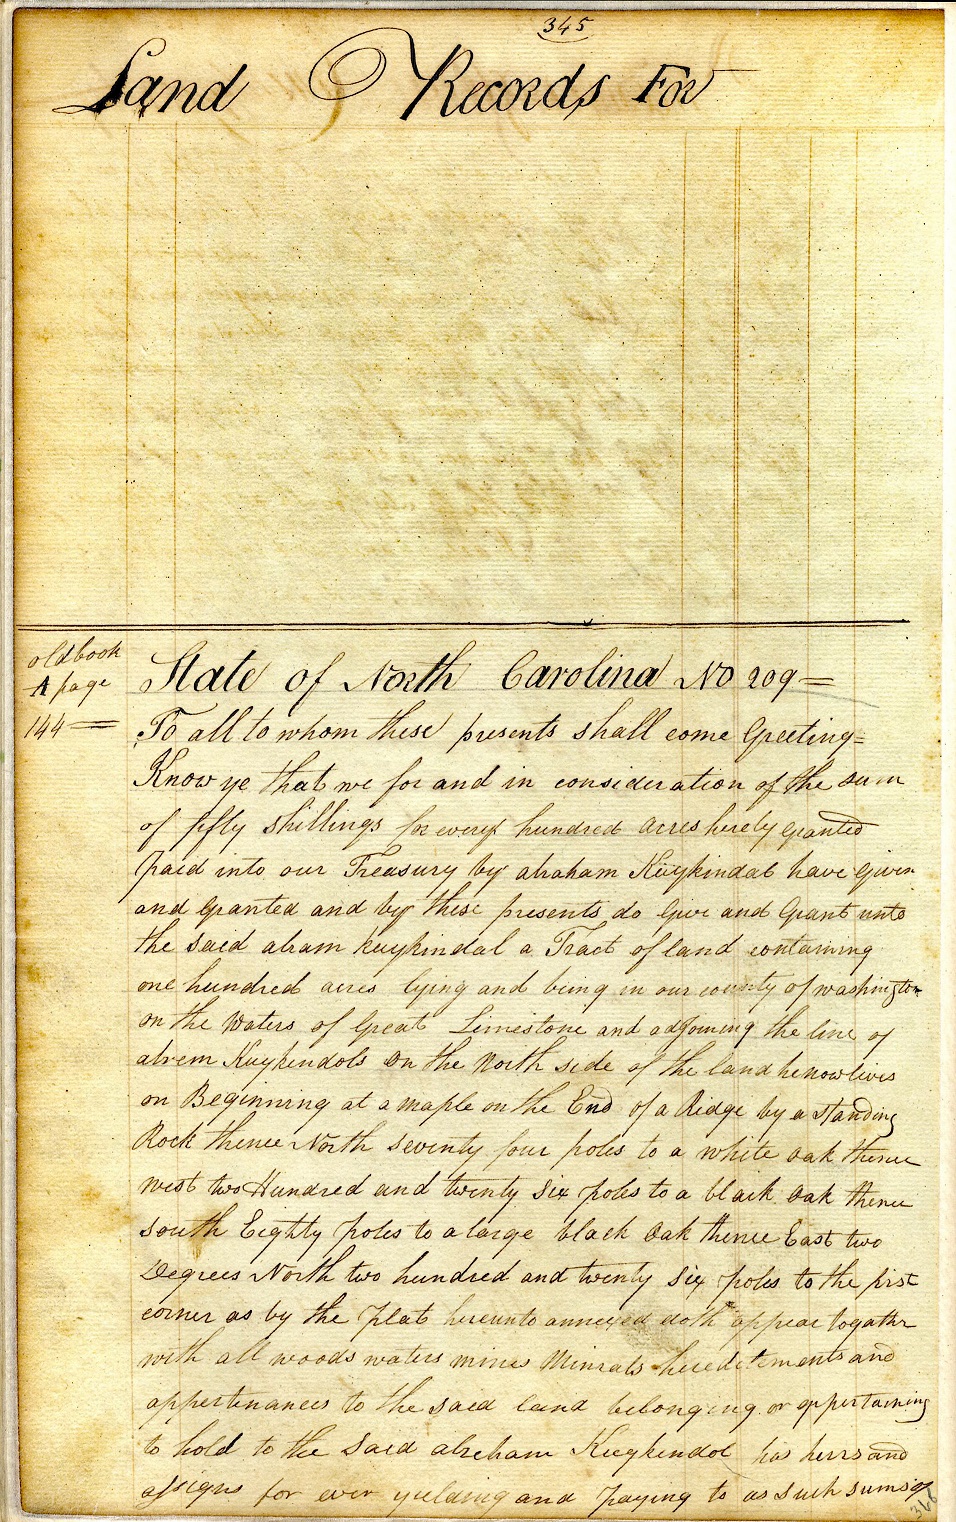 345
Land Records For
old book
A page
144=
State of North Carolina No 209=
To all to whom these presents shall come Greeting=
Know ye that we for and in consideration of the sum
of fifty shillings for every hundred acres herely granted
paid into our Treasury by abraham Kuykindal have given
and Granted and by these presents do Give and Grant unto
the said abram kuykindal a Tract of land containing
one hundred acres lying and being in our county of washington
on the Waters of Great Limestone and adjoining the line of
abrem Kuykendols on the North side of the land he now lives
on Beginning at a maple on the End of a Ridge by a standing
Rock thence North seventy four poles to a white oak thence
west two Hundred and twenty six poles to a black oak thence
south Eighty poles to a large black oak thence East two
Degrees North two hundred and twenty six poles to the first
corner as by the plat hereunto annexed doth appear togathr
with all woods waters mines Minrals hereditements and
appertenances to the said land belonging or appertaining
to hold to the said abreham Kuykendol his heirs and
assigns for ever yielding and paying to us such sums of
346